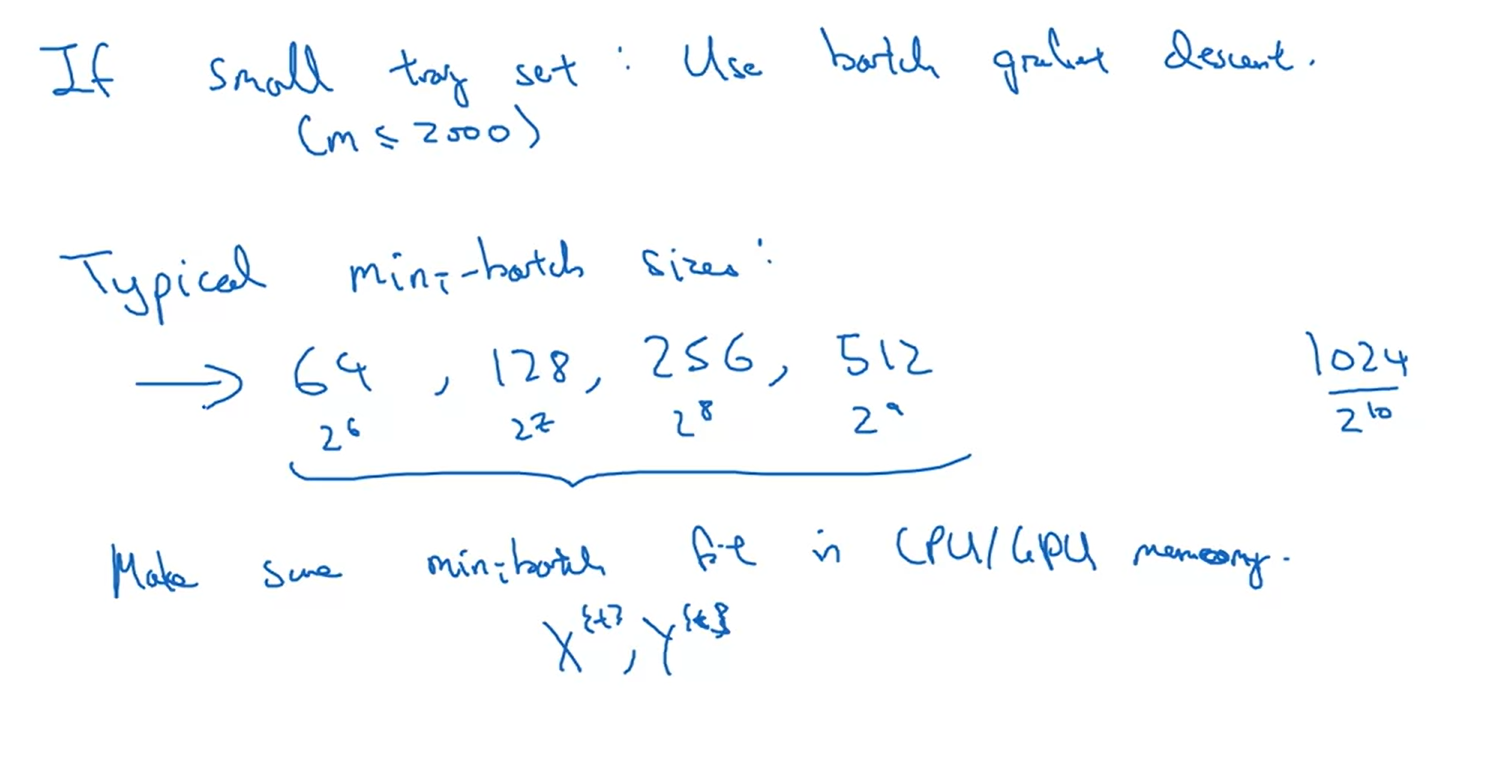 If small tray set : Use batch gradient descent.
(m ≤ 2000)
Typical mini-batch sizes :
→ 64 , 128, 256, 512 1024
2^6 2^7 2^8 2^9 2^10
Make sure minibatch fit in CPU/GPU memory.
X^{t}, Y^{t}